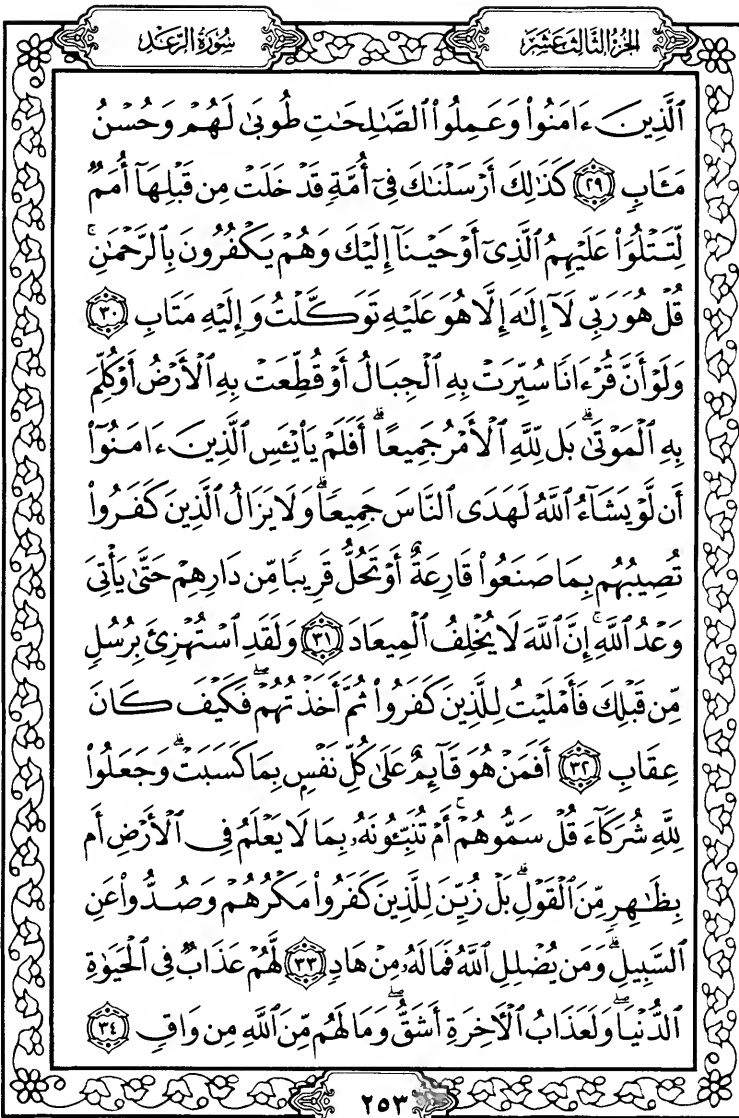 سُورَةُ الرَّعْدِ
الجُزْءُ الثَّالِثَ عَشَرَ
ٱلَّذِينَ ءَامَنُواْ وَعَمِلُواْ ٱلصَّٰلِحَٰتِ طُوبَىٰ لَهُمْ وَحُسْنُ
مَـَٔابٍ ٢٩ كَذَٰلِكَ أَرْسَلْنَٰكَ فِىٓ أُمَّةٍ قَدْ خَلَتْ مِن قَبْلِهَآ أُمَمٌ
لِّتَتْلُوَاْ عَلَيْهِمُ ٱلَّذِىٓ أَوْحَيْنَآ إِلَيْكَ وَهُمْ يَكْفُرُونَ بِٱلرَّحْمَٰنِۚ
قُلْ هُوَ رَبِّى لَآ إِلَٰهَ إِلَّا هُوَ عَلَيْهِ تَوَكَّلْتُ وَإِلَيْهِ مَتَابِ ٣٠
وَلَوْ أَنَّ قُرْءَانًا سُيِّرَتْ بِهِ ٱلْجِبَالُ أَوْ قُطِّعَتْ بِهِ ٱلْأَرْضُ أَوْ كُلِّمَ
بِهِ ٱلْمَوْتَىٰۗ بَل لِّلَّهِ ٱلْأَمْرُ جَمِيعًاۗ أَفَلَمْ يَاْيْـَٔسِ ٱلَّذِينَ ءَامَنُوٓاْ
أَن لَّوْ يَشَآءُ ٱللَّهُ لَهَدَى ٱلنَّاسَ جَمِيعًاۗ وَلَا يَزَالُ ٱلَّذِينَ كَفَرُواْ
تُصِيبُهُم بِمَا صَنَعُواْ قَارِعَةٌ أَوْ تَحُلُّ قَرِيبًا مِّن دَارِهِمْ حَتَّىٰ يَأْتِىَ
وَعْدُ ٱللَّهِۚ إِنَّ ٱللَّهَ لَا يُخْلِفُ ٱلْمِيعَادَ ٣١ وَلَقَدِ ٱسْتُهْزِئَ بِرُسُلٍ
مِّن قَبْلِكَ فَأَمْلَيْتُ لِلَّذِينَ كَفَرُواْ ثُمَّ أَخَذْتُهُمْۖ فَكَيْفَ كَانَ
عِقَابِ ٣٢ أَفَمَنْ هُوَ قَآئِمٌ عَلَىٰ كُلِّ نَفْسٍۭ بِمَا كَسَبَتْۗ وَجَعَلُواْ
لِلَّهِ شُرَكَآءَ قُلْ سَمُّوهُمْۚ أَمْ تُنَبِّـُٔونَهُۥ بِمَا لَا يَعْلَمُ فِى ٱلْأَرْضِ أَم
بِظَٰهِرٍ مِّنَ ٱلْقَوْلِۗ بَلْ زُيِّنَ لِلَّذِينَ كَفَرُواْ مَكْرُهُمْ وَصُدُّواْ عَنِ
ٱلسَّبِيلِۗ وَمَن يُضْلِلِ ٱللَّهُ فَمَا لَهُۥ مِنْ هَادٍ ٣٣ لَّهُمْ عَذَابٌ فِى ٱلْحَيَوٰةِ
ٱلدُّنْيَاۖ وَلَعَذَابُ ٱلْأَخِرَةِ أَشَقُّۖ وَمَا لَهُم مِّنَ ٱللَّهِ مِن وَاقٍ ٣٤
٢٥٣